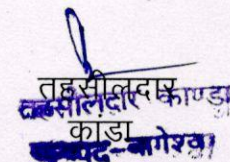 तहसीलदार
तहसीलदार काण्डा
कांडा
जनपद-बागेश्वर